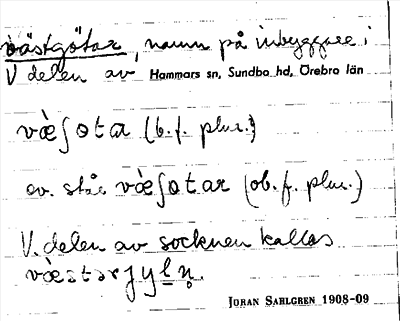 västgötar, namn på inbyggare i
V delen av Hammars sn, Sundbo hd, Örebro län
væ̀ʃotar (b.f. plur.)
av. står væ̀ʃotar (ob.f. plur.)
V. delen av socknen kallas
JOHAN SAHLGREN 1908-09